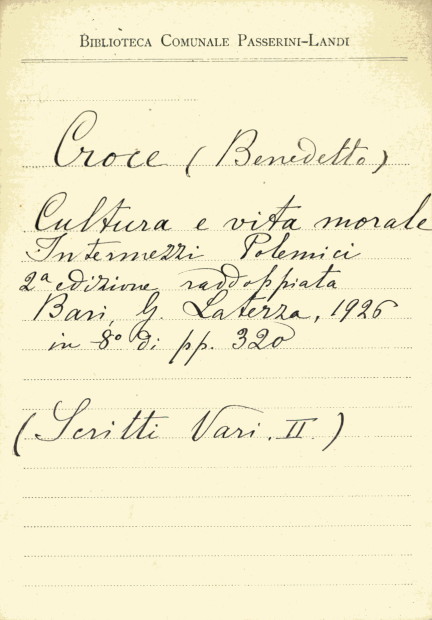 BIBLIOTECA COMUNALE PASSERINI-LANDI
Croce (Benedetto)
Cultura e vita morale
Intermezzi Polemici
2ª edizione raddoppiata
Bari, G. Laterza, 1926
in 8° di pp. 320
(Scritti Vari. II.)